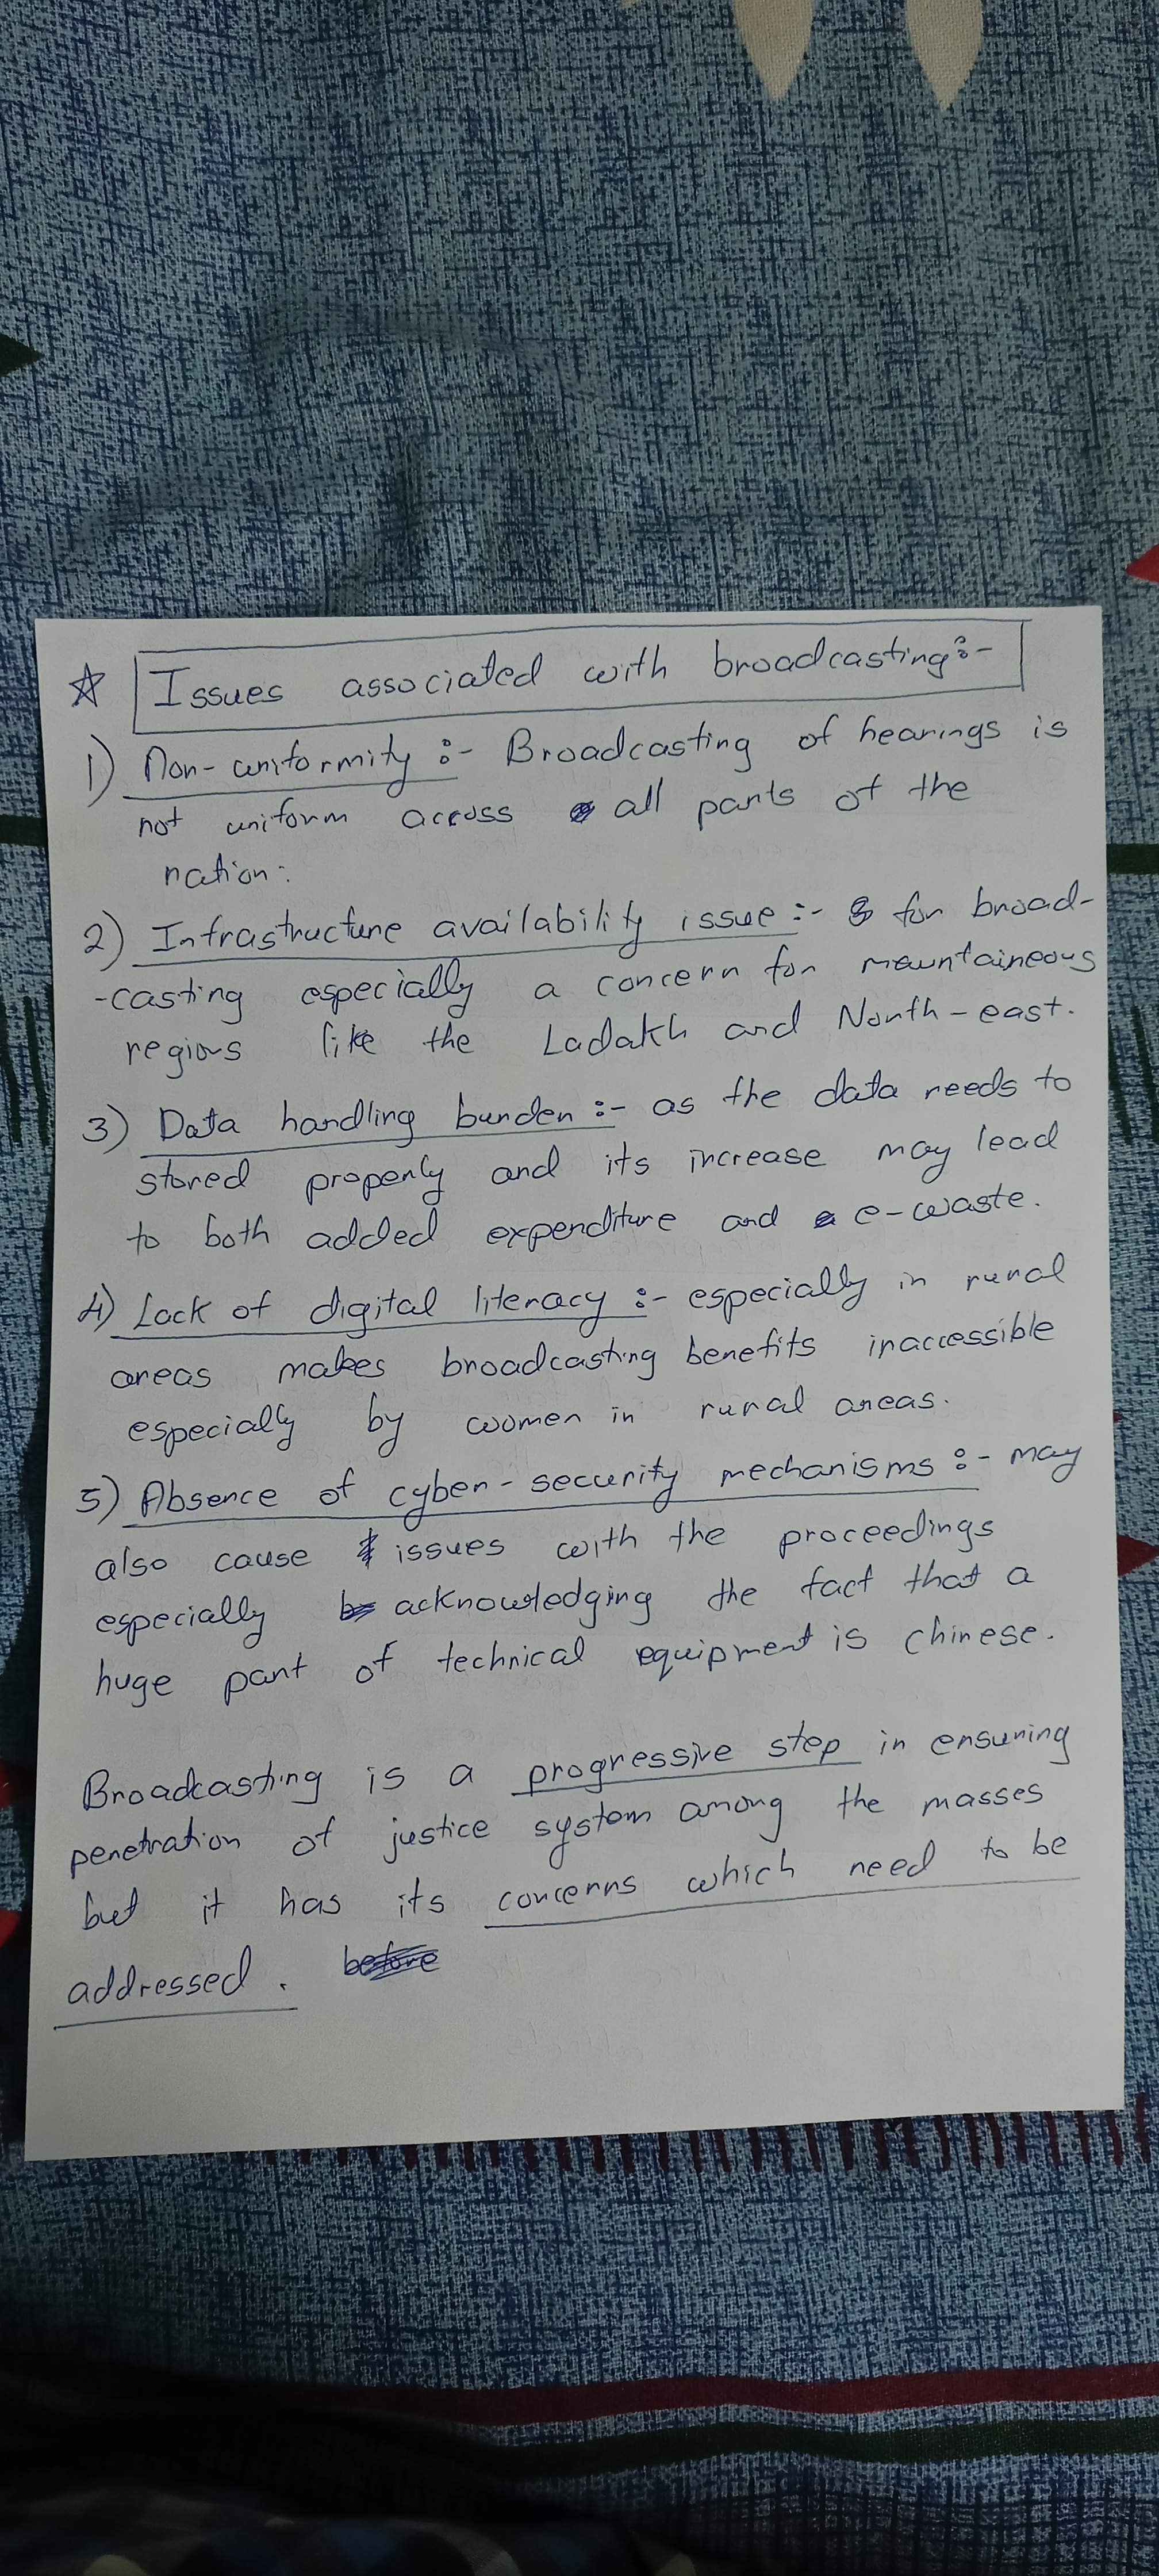 ☆ Issues associated with broadcasting:-
1) Non-uniformity :- Broadcasting of hearings is
not uniform across all parts of the
nation.
2) Infrastructure availability issue :- for broad-
-casting especially a concern for mountaineous
regions like the Ladakh and North-east.
3) Data handling burden :- as the data needs to
stored properly and its increase may lead
to both added expenditure and e-waste.
4) Lack of digital literacy :- especially in rural
areas makes broadcasting benefits inaccessible
especially by women in rural areas.
5) Absence of cyber-security mechanisms :- may
also cause issues with the proceedings
especially acknowledging the fact that a
huge part of technical equipment is chinese.
Broadcasting is a progressive step in ensuring
penetration of justice system among the masses
but it has its concerns which need to be
addressed. before